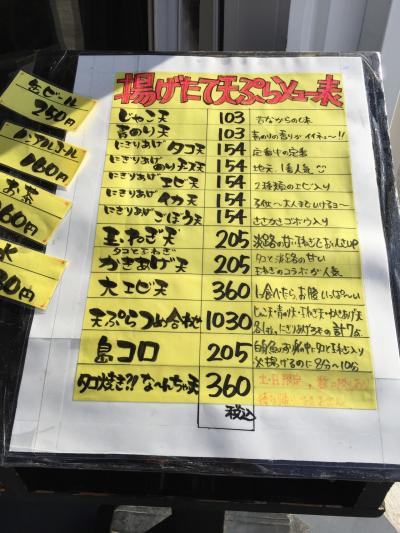 揚げたて天ぷらメニュー表
缶ビール
250円
ノンアルコール
160円
お茶
160円
水
円
じゃこ天 103 昔ながらの味
青のり天 103 青のりの香りがイイネ〜!!
にぎりあげ タコ天 154 定番中の定番
にぎりあげ のりチーズ天 154 地元1番人気
にぎりあげ エビ天 154 2種類のエビ入り
にぎりあげ イカ天 154
にぎりあげ ごぼう天 154 ささがきゴボウ入り
玉ねぎ天 205 淡路の甘い玉ねぎで
タコと玉ねぎ
かきあげ天 205 タコと淡路の甘い
玉ねぎのコラボが人気
大エビ天 360 1つ食べたら、お腹いっぱ〜い
天ぷらつめ合わせ 1030 じゃこ天・青のり天・玉ねぎ天・かきあげ天
各1ヶ、にぎりあげ3ヶの計7ヶ
島コロ 205
揚げるのに8分〜10分
タコ焼き?!な〜んちゃ天 360 土日限定
税込